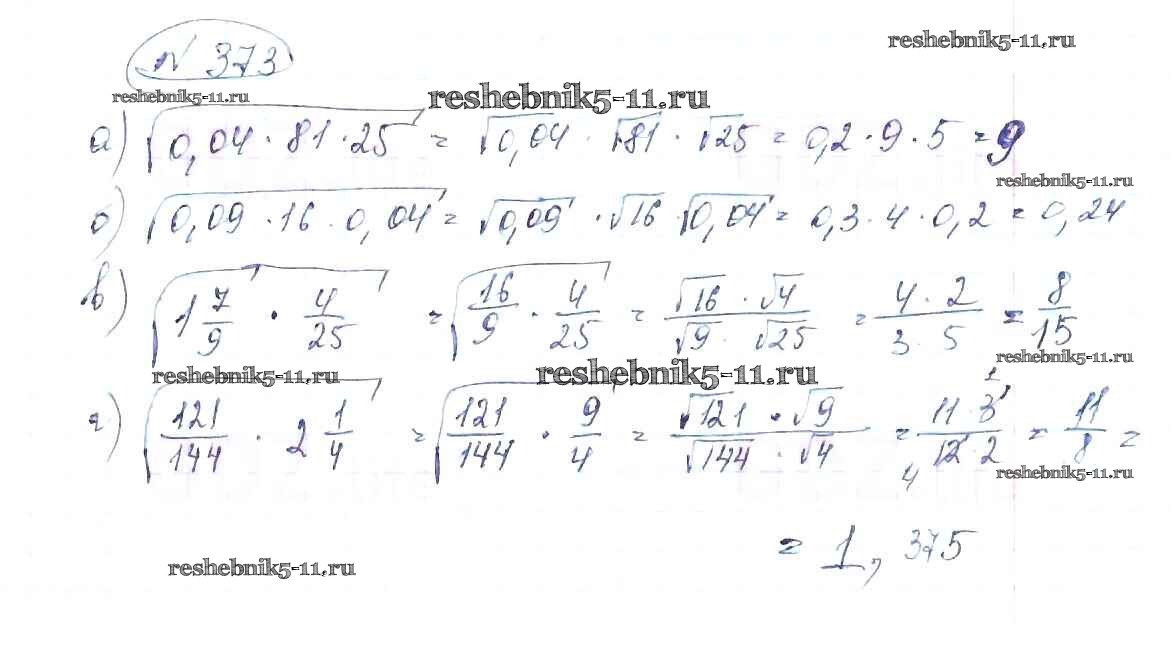 № 373
reshebnik5-11.ru
reshebnik5-11.ru reshebnik5-11.ru
а) √(0,04 · 81 · 25) = √0,04 · √81 · √25 = 0,2 · 9 · 5 = 9
reshebnik5-11.ru
б) √(0,09 · 16 · 0,04) = √0,09 · √16 √0,04 = 0,3 · 4 · 0,2 = 0,24
в) √(1 7/9 · 4/25) = √(16/9 · 4/25) = (√16 · √4)/(√9 · √25) = (4 · 2)/(3 · 5) = 8/15
reshebnik5-11.ru
reshebnik5-11.ru reshebnik5-11.ru
г) √(121/144 · 2 1/4) = √(121/144 · 9/4) = (√121 · √9)/(√144 · √4) = (11 · 3 1)/(4 12 · 2) = 11/8 =
reshebnik5-11.ru
= 1,375
reshebnik5-11.ru